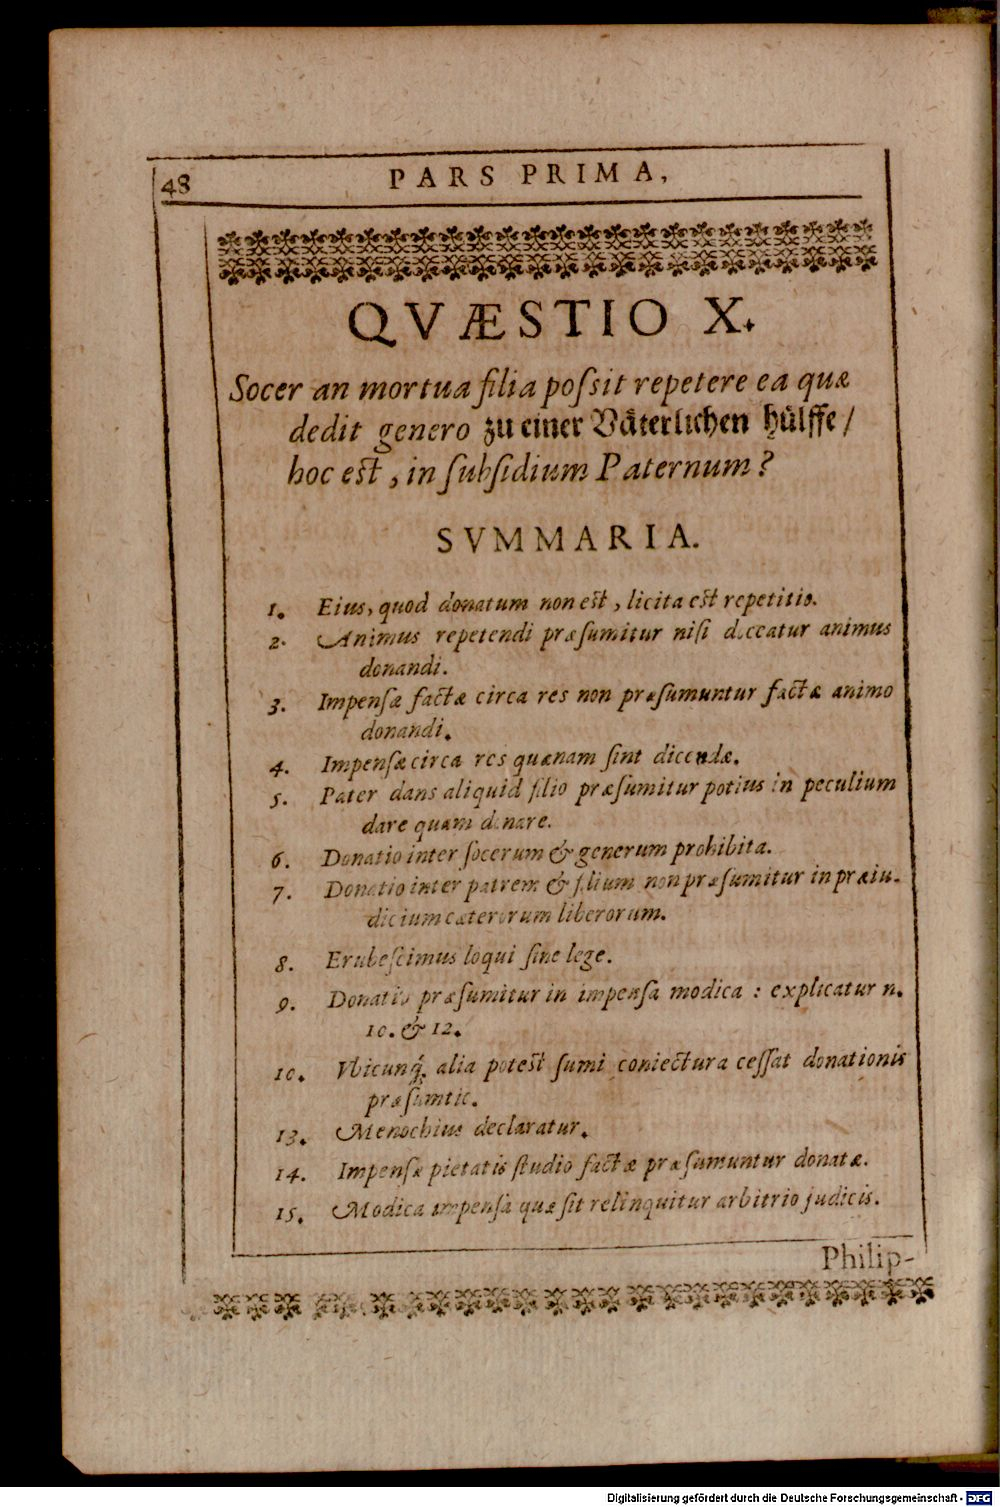 48
PARS PRIMA,
QVÆSTIO X.
Socer an mortua filia poſsit repetere ea quæ
dedit genero zu einer Vaͤterlichen huͤlffe /
hoc est, in ſubſidium Paternum?
SVMMARIA.
1. Eius, quod donatum non est, licita est repetitio.
2. Animus repetendi præſumitur niſi doceatur animus
donandi.
3. Impenſæ factæ circa res non præſumuntur factæ animo
donandi.
4. Impenſæ circa res quænam ſint dicendæ.
5. Pater dans aliquid filio præſumitur potius in peculium
dare quam donare.
6. Donatio inter ſocerum & generum prohibita.
7. Donatio inter patrem & filium non præſumitur in præiu-
dicium cæterorum liberorum.
8. Erubeſcimus loqui ſine lege.
9. Donatio præſumitur in impenſa modica : explicatur n.
10. & 12.
10. Vbicunq́; alia potest ſumi coniectura ceſſat donationis
præſumtio.
13. Menochius declaratur.
14. Impenſæ pietatis ſtudio factæ præſumuntur donatæ.
15. Modica impenſa quæ ſit relinquitur arbitrio judicis.
Philip-
Digitalisierung gefördert durch die Deutsche Forschungsgemeinschaft - DFG